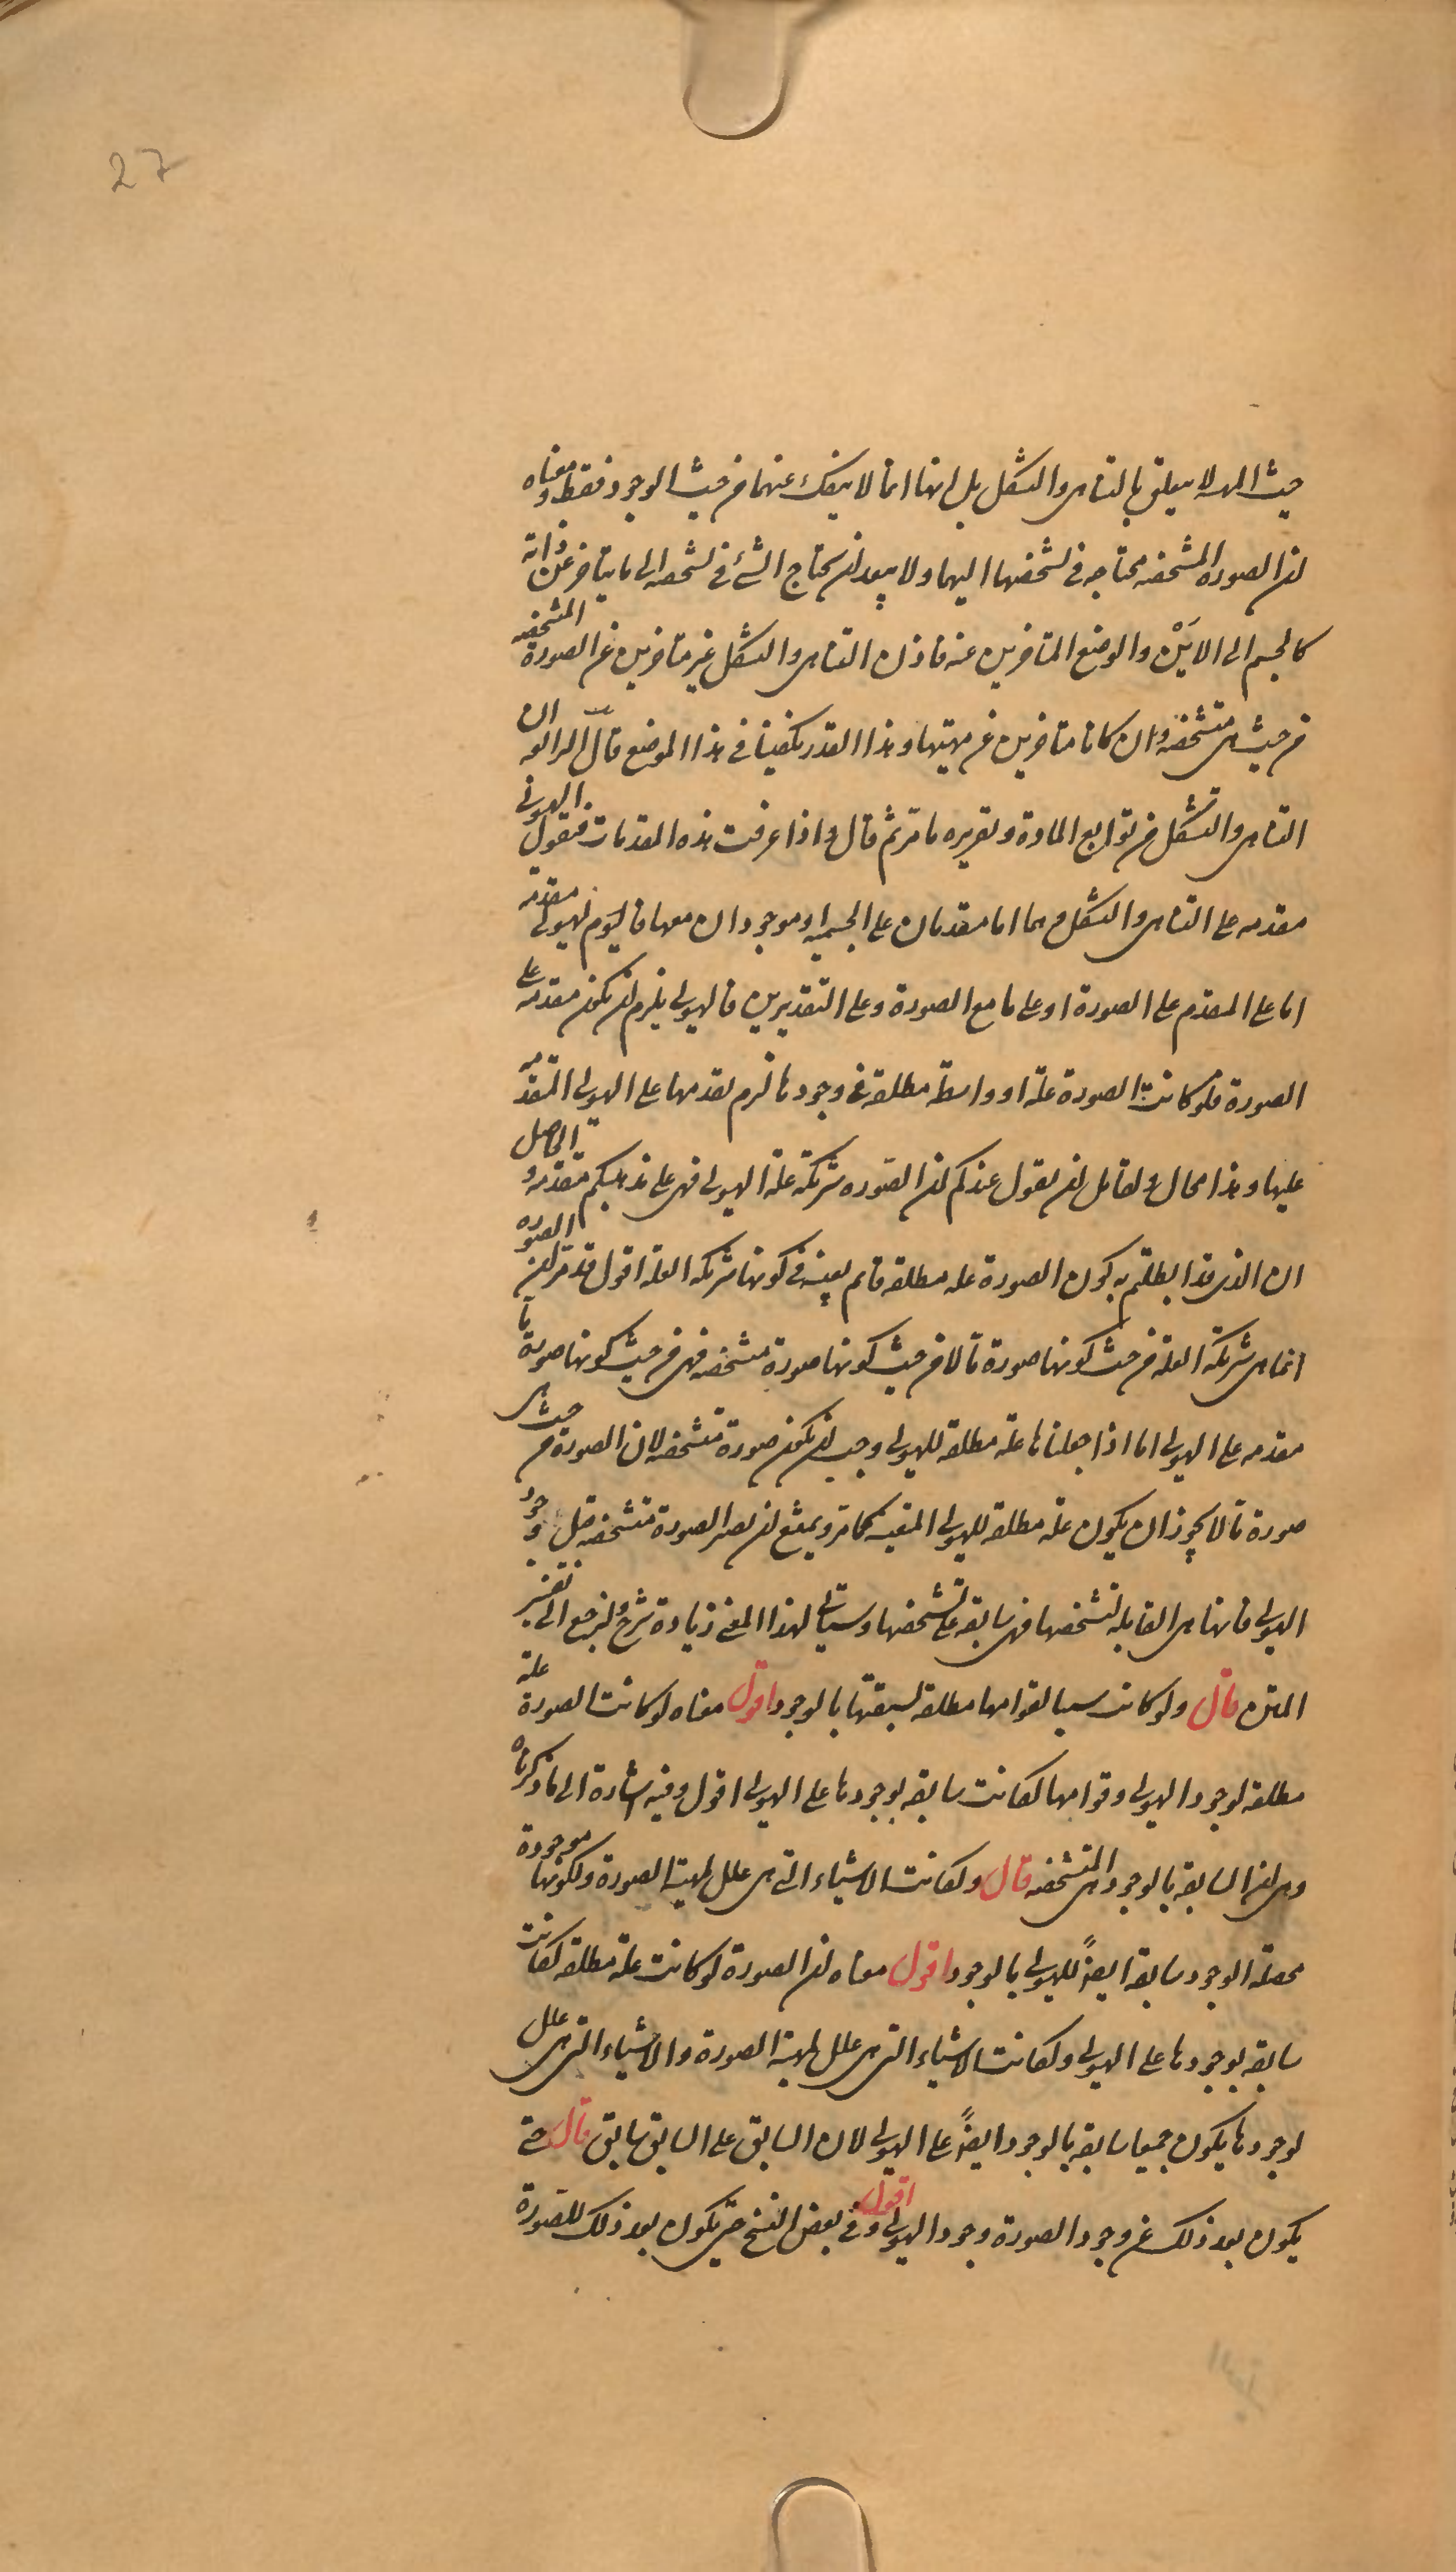 27
حيث المهية لا يتعلق بالتناهى والتشكل بل انها انما لا ينفك عنهما من حيث الوجود فقط ومعناه
ان الصورة المتشخصه محتاجه فى تشخصها اليهما ولا يبعد ان يحتاج الشئ فى تشخصه الى ما يتاخر عن ذاته
كالجسم الى الاَيْن والوضع المتاخرين عنه فاذن التناهى والتشكل غير متاخرين عن الصورة المتشخصه
من حيث هى متشخصه وان كانا متاخرين عن مهيتها وهذا القدر يكفينا فى هذا الموضع قال الرابع ان
التناهى والتشكل من توابع المادة وتقريره ما مر ثم قال واذا عرفت هذه المقدمات فنقول الهيولى
مقدمه على التناهى والتشكل وهما اما مقدمان على الجسمية او موجودان معها فاليوم الهيولى مقدمة
اما على المقدم على الصورة او على ما مع الصورة وعلى التقديرين فالهيولى يلزم ان يكون مقدمه على
الصورة فلو كانت الصورة علة او واسطة مطلقة فى وجودها لزم تقدمها على الهيولى المتقدمه
عليها وهذا محال ولقائل ان يقول عندكم ان الصوره شريكة علة الهيولى فهى على مذهبكم متقدمه والحاصل
ان الذى قد ابطلتم به كون الصورة علة مطلقه قائم بعينه فى كونها شريكه العلة اقول قد مر ان الصوره
انما هى شريكة العلة من حيث كونها صورة ما لا من حيث كونها صورة متشخصه فهى من حيث كونها صورة ما
مقدمه على الهيولى اما اذا جعلناها علة مطلقة للهيولى وجب ان يكون صورة متشخصه لان الصورة من حيث هى
صورة ما لا يجوز ان يكون علة مطلقه للهيولى المعينه كما مر ويمتنع ان يصير الصورة متشخصه قبل وجود
الهيولى فانها هى القابلة لتشخصها فهى سابقه على تشخصها وسياتى لهذا المعنى زيادة شرح ولنرجع الى تفسير
المتن قال ولو كانت سببا لقوامها مطلقا لسبقتها بالوجود اقول معناه لو كانت الصورة علة
مطلقه لوجود الهيولى وقوامها لكانت سابقه بوجودها على الهيولى اقول وفيه اشارة الى ما ذكرناه
وهى ان السابقه بالوجود هى المتشخصه قال ولكانت الاشياء التى هى علل لمهية الصورة ولكونها موجودة
محصلة الوجود سابقة ايضاً للهيولى بالوجود اقول معناه ان الصورة لو كانت علة مطلقة لكانت
سابقه بوجودها على الهيولى ولكانت الاشياء التى هى علل لمهية الصورة والاشياء التى هى علل
لوجودها يكون جميعا سابقه بالوجود ايضاً على الهيولى لان السابق على السابق سابق قال حتى
يكون بعد ذلك عن وجود الصورة وجود الهيولى اقول وفى بعض النسخ حتى يكون بعد ذلك للصورة